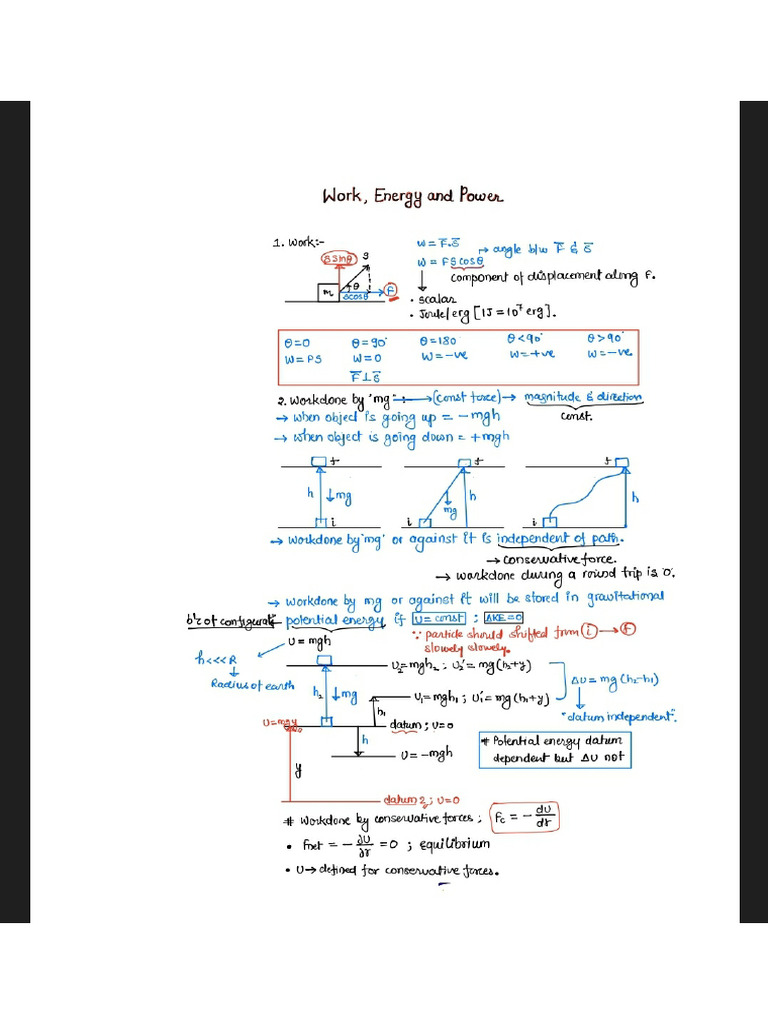 Work, Energy and Power
1. Work:-
W = F̅.S̅
→ angle b/w F̅ & S̅
W = FScosθ
component of displacement along F.
• scalar
• Joule/erg [1J = 10⁷ erg].
S sinθ
S
θ
m
Scosθ
F
θ=0 θ=90° θ=180 θ<90° θ>90°
W=FS W=0 W=-ve W=+ve W=-ve
F̅⊥S̅
2. Workdone by "mg" :→ (const force) → magnitude & direction
const.
→ when object is going up = -mgh
→ when object is going down = +mgh
f f f
h ↓mg mg h h
i i i
→ workdone by 'mg' or against it is independent of path.
→ conservative force.
→ workdone during a round trip is 0.
→ workdone by mg or against it will be stored in gravitational
potential energy if U = const ; ΔKE=0
U = mgh
∵ particle should shifted from i → f
slowly slowly.
h<<<R
Radius of earth
U₂=mgh₂ ; U₂'=mg(h₂+y)
h₂ ↓mg
U₁=mgh₁ ; U₁'=mg(h₁+y)
h₁
ΔU = mg(h₂-h₁)
"datum independent".
U=mgy
datum ; U=0
h
U = -mgh
# Potential energy datum
dependent but ΔU not
y
datum 2 ; U=0
# Workdone by conservative forces ; Fc = - dU/dr
• Fnet = - ∂U/∂r = 0 ; equilibrium
• U → defined for conservative forces.